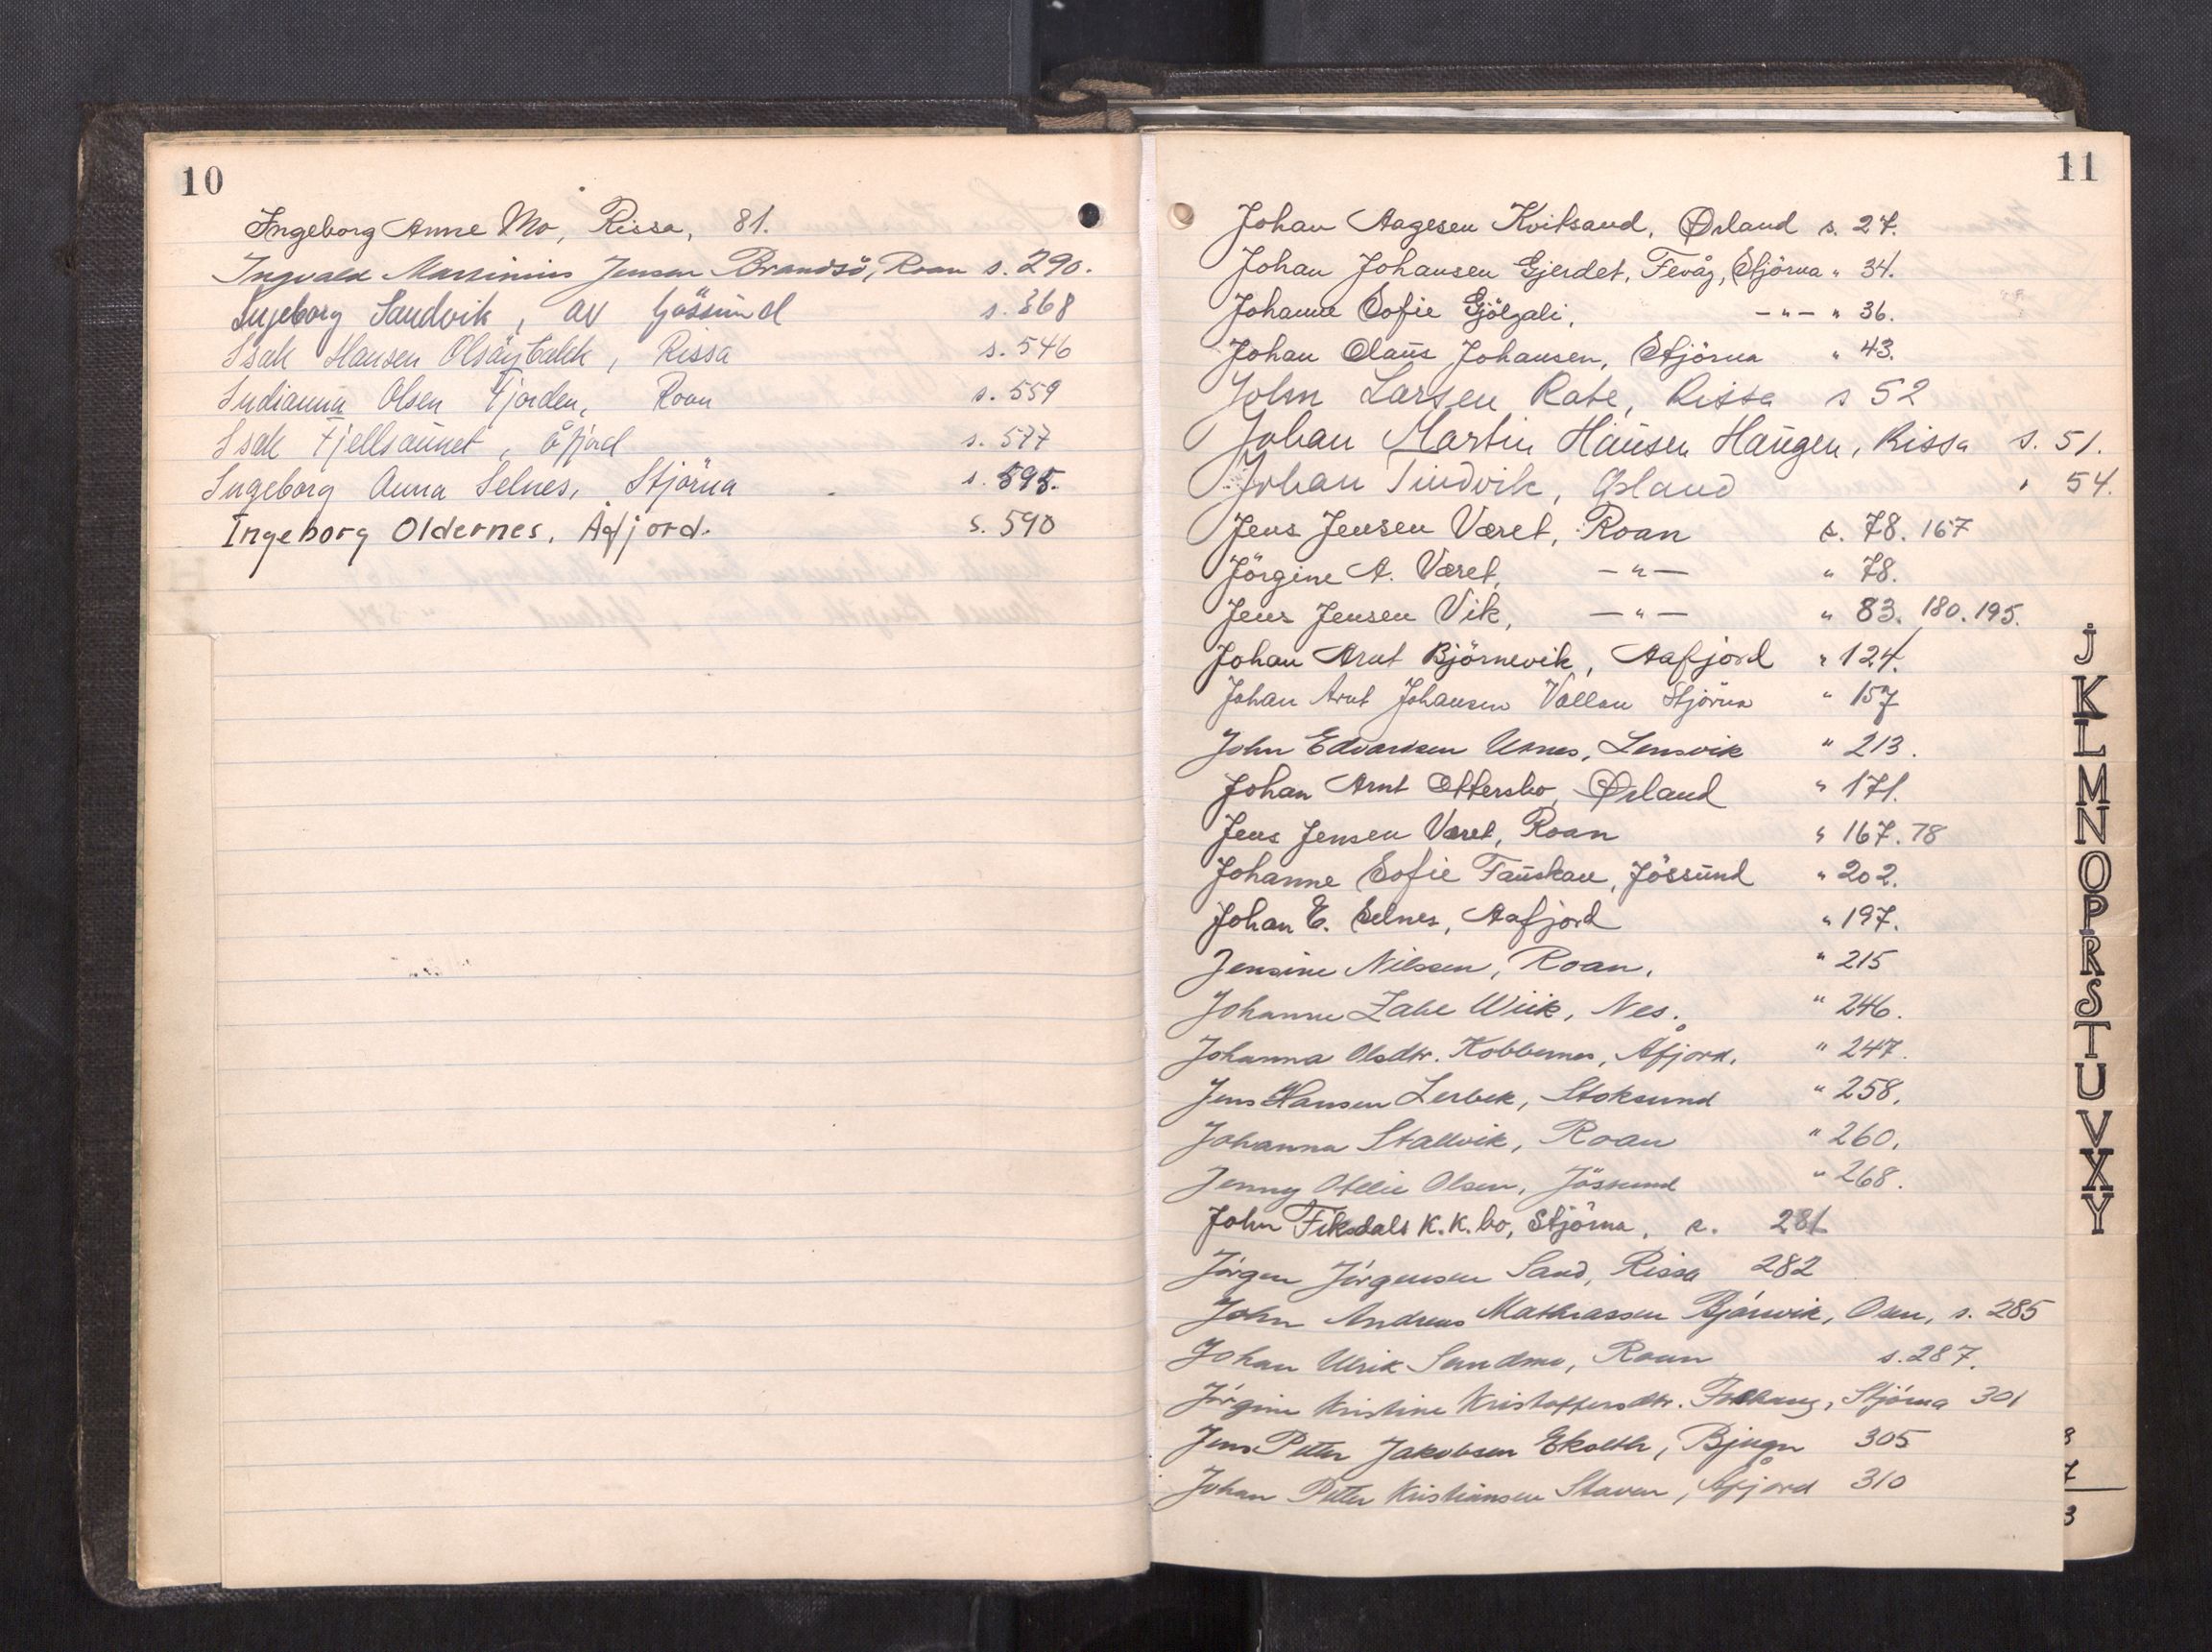 10
Ingeborg Anne Mo, Rissa, 81.
Ingvald Marsinius Jensen Brandsö, Roan s. 290.
Ingeborg Sandvik, av Jössund s. 368
Isak Hansen Olsöybakk, Rissa s. 546
Indianna Olsen Fjorden, Roan s. 559
Isak Fjellsaunet, Åfjord s. 577
Ingeborg Anna Selnes, Stjörna s. 595.
Ingeborg Oldernes, Åfjord. s. 590
11
Johan Aagesen Kvitsand, Ørland s. 27.
Johan Johansen Gjerdet, Fevåg, Stjörna " 34.
Johanne Sofie Gjölgali, -"- " 36.
Johan Olaus Johansen, Stjörna " 43.
John Larsen Rabe, Rissa s 52
Johan Martin Hansen Haugen, Rissa s. 51.
Johan Tindvik, Ørland " 54.
Jens Jensen Været, Roan s. 78. 167
Jörgine A. Været, -"- " 78.
Jens Jensen Vik, -"- " 83. 180. 195.
Johan Arnt Björnevik, Aafjord " 124.
Johan Arnt Johansen Vallan Stjörna " 157
John Edvardsen Usnes, Lensvik " 213.
Johan Arnt Ottersbo, Ørland " 171.
Jens Jensen Været, Roan " 167. 78
Johanne Sofie Fauskan, Jössund " 202.
Johan E. Selnes, Aafjord " 197.
Jensine Nilssen, Roan. " 215
Johanne Wiik, Nes. " 246.
Johanna Olsdtr. Kobbernes, Åfjord. " 247.
Jens Hansen Lerbek, Stoksund " 258.
Johanna Stallvik, Roan " 260.
Jenny Otelie Olsen, Jössund " 268.
John Fiksdals K.K. bo, Stjörna, s. 281
Jörgen Jörgensen Sand, Rissa 282
John Andreas Mathiassen Bjørvik, Osen, s. 285
Johan Ulrik Sundmo, Roan s. 287.
Jörgine Kristine Kristoffersdtr. Stjórna 301
Jens Petter Jakobsen Ekseth, Bjugn 305
Johan Petter Kristiansen Staven, Åfjord 310
J
K
L
M
N
O
P
R
S
T
U
V
X
Y
8
7
3